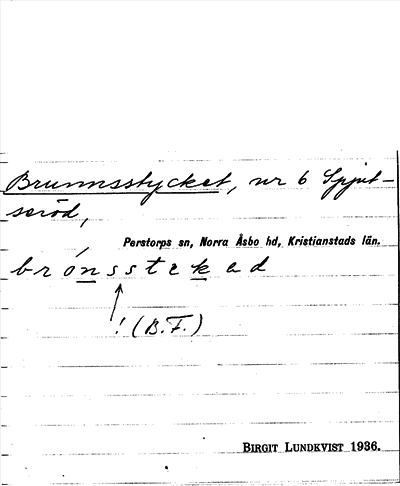 Brunnsstycket, nr 6 Spjut-
seröd,
Perstorps sn, Norra Åsbo hd, Kristianstads län.
brónsstekad
! (B.F.)
BIRGIT LUNDKVIST 1936.